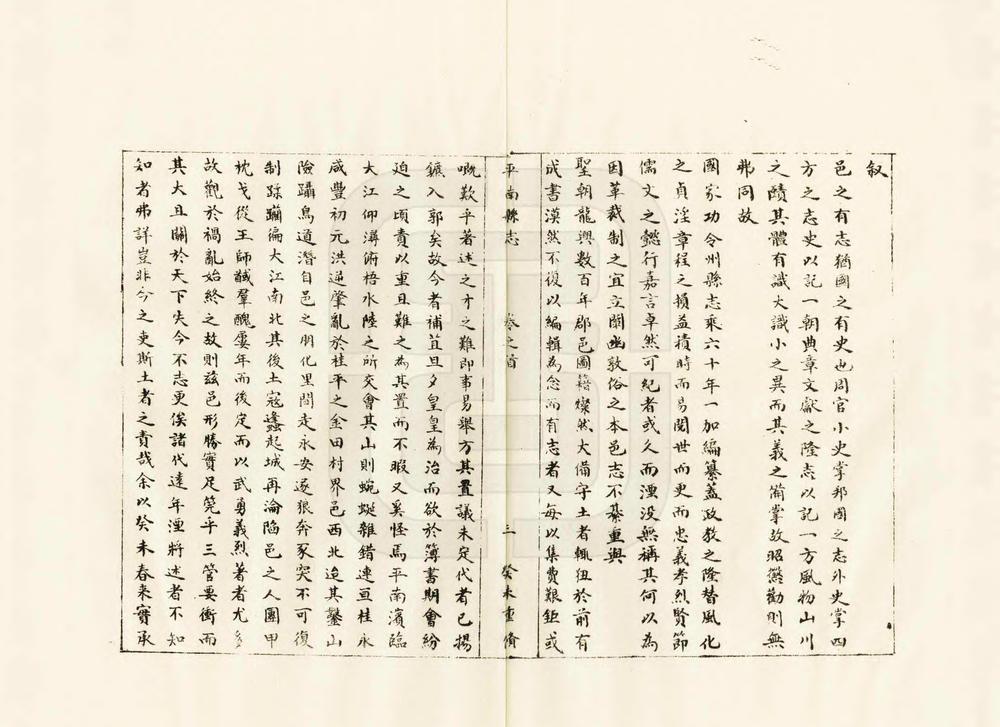 叙
邑之有志猶國之有史也周官小史掌邦國之志外史掌四
方之志史以記一朝典章文獻之隆志以記一方風物山川
之賾其體有識大識小之異而其義之備掌故昭懲勸則無
弗同故
國家功令州縣志乘六十年一加編纂蓋政教之隆替風化
之貞淫章程之損益積時而易閱世而更而忠義孝烈賢節
儒文之懿行嘉言卓然可紀者或久而湮没無稱其何以為
因革裁制之宜立闡幽敦俗之本邑志不綦重與
聖朝龍興數百年郡邑圖籍燦然大備守土者輒狃於前有
成書漠然不復以編輯為念而有志者又每以集費艱鉅或
平南縣志
卷之首
三
癸未重脩
嘅歎乎著述之才之難即事易舉方其置議未定代者已揚
鑣入郭矣故今者補苴旦夕皇皇為治而欲於簿書期會紛
迫之頃責以重且難之為其置而不暇又奚怪焉平南濱臨
大江仰溝俯梧水陸之所交會其山則蜿蜒雜錯連亘桂永
咸豐初元洪逆肇亂於桂平之金田村界邑西北迨其鑿山
險躡鳥道潛自邑之朋化里間走永安遂狼奔豕突不可復
制踪蹦徧大江南北其後土寇蠭起城再淪陷邑之人團甲
枕戈從王師馘羣醜屢年而後定而以武勇義烈著者尤多
故觀於禍亂始終之故則兹邑形勝實足筦乎三管要衝而
其大且關於天下失今不志更俟諸代遠年湮將述者不知
知者弗詳豈非今之吏斯土者之責哉余以癸未春來實承